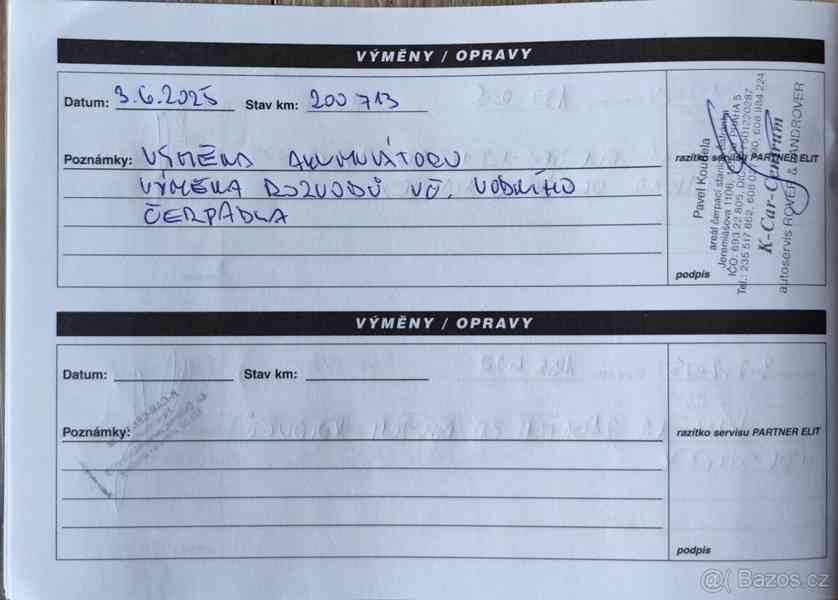 VÝMĚNY / OPRAVY
Datum: 3.6.2025 Stav km: 200 713
Poznámky: VÝMĚNA AKUMULÁTORU
VÝMĚNA ROZVODŮ VČ. VODNÍHO
ČERPADLA
razítko servisu PARTNER ELIT
Pavel Koudela
areál čerpací stanice
Jeremiášova 1106,
IČO: 693 22 805,
Tel.: 235 517 862, 608 984 224
K-Car-Centrum
autoservis ROVER & LANDROVER
podpis
VÝMĚNY / OPRAVY
Datum: Stav km:
Poznámky:
razítko servisu PARTNER ELIT
podpis
@ Bazos.cz